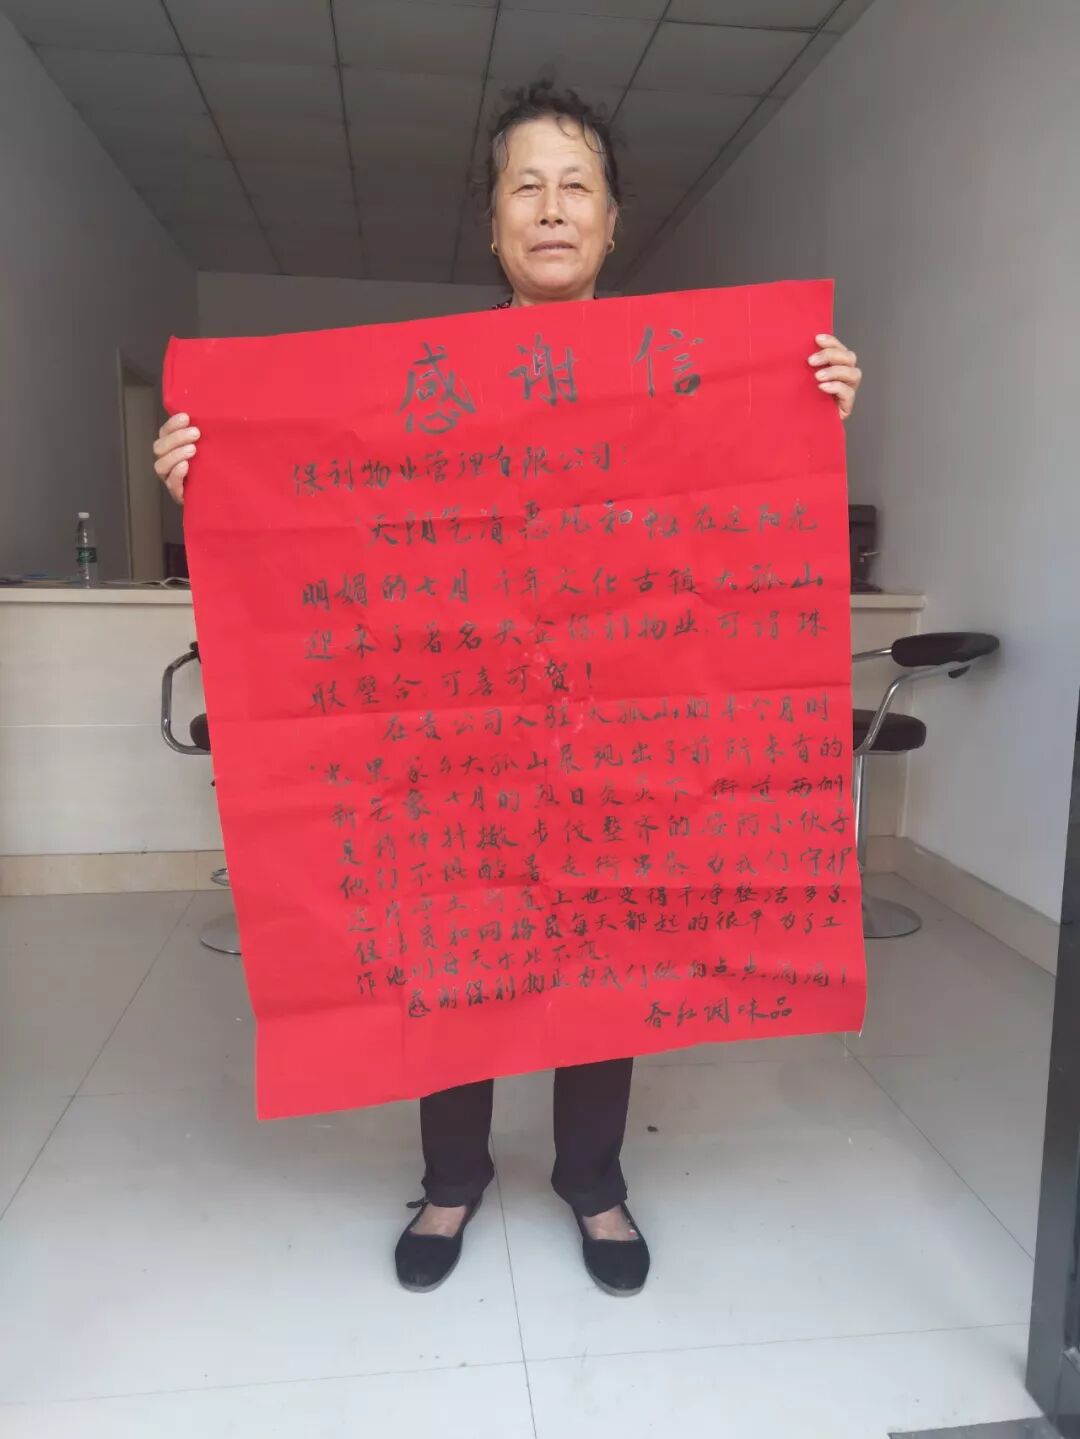 感谢信
保利物业管理有限公司:
天朗气清,惠风和畅在这阳光
明媚的七月,千年文化古镇大孤山
迎来了著名央企保利物业,可谓珠
联璧合,可喜可贺!
在贵公司入驻大孤山的半个月时
光里家乡大孤山展现出了前所未有的
新气象,七月的烈日炎炎下,街道两侧
是精神抖擞,步伐整齐的安防小伙子
他们不惧酷暑,走街串巷,为我们守护
这片净土,街道上也变得干净整洁多了,
保洁员和网格员每天都起的很早为了工
作他们每天如此不变,
感谢保利物业为我们做的点点滴滴!
春红调味品